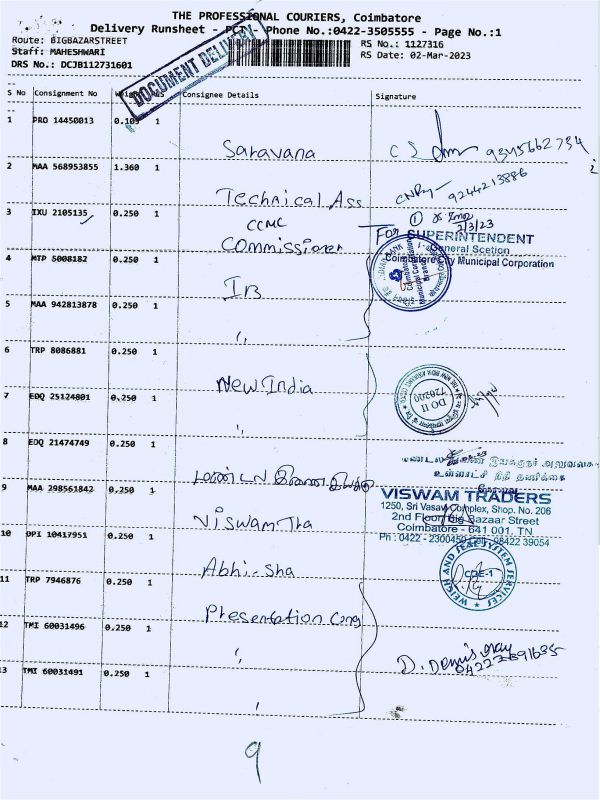 THE PROFESSIONAL COURIERS, Coimbatore
Delivery Runsheet - PCTY- Phone No.:0422-3505555 - Page No.:1
Route: BIGBAZARSTREET
RS No.: 1127316
Staff: MAHESHWARI
RS Date: 02-Mar-2023
DRS No.: DCJB112731601
DOCUMENT DELIVERY
S No Consignment No Weight Consignee Details Signature
1 PRO 14450013 0.105 1 Saravana
2 MAA 568953855 1.360 1 Technical Ass 9244213886
3 IXU 2105135 0.250 1 CCMC
Commissioner
2/3/23
For SUPERINTENDENT
General Scetion
Coimbatore City Municipal Corporation
4 MTP 5008182 0.250 1 IB
5 MAA 942813878 0.250 1 "
6 TRP 8086881 0.250 1 New India
DO II
720200
7 EDQ 25124801 0.250 1 "
8 EDQ 21474749 0.250 1 மண்டல இணை இயக்கு
உள்ளாட்சி நிதி தணிக்கை
9 MAA 298561842 0.250 1 Viswam Tra
VISWAM TRADERS
1250, Sri Vasavi Complex, Shop. No. 206
2nd Floor, Big Bazaar Street
Coimbatore - 641 001. TN
Ph : 0422 - 2300450 Cell : 98422 39054
10 OPI 10417951 0.250 1 Abhi-sha
WEIGH AND SEAL SYSTEM SERVICES
CBE-1
11 TRP 7946876 0.250 1 Presentation Cong
12 TMI 60031496 0.250 1 "
13 TMI 60031491 0.250 1 "
9